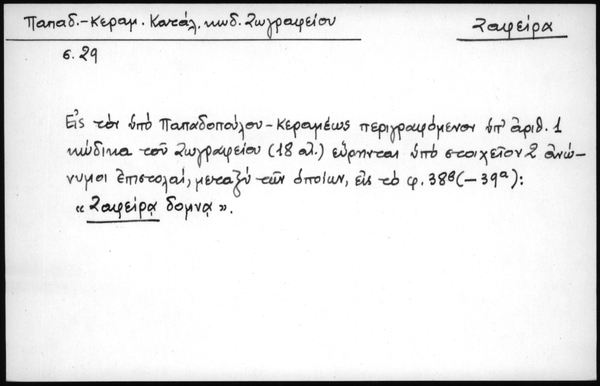 Παπαδ.-Κεραμ. Κατάλ. κωδ. Ζωγραφείου
Ζαφείρα
σ. 29
Εἰς τὸν ὑπὸ Παπαδοπούλου-Κεραμέως περιγραφόμενον ὑπ' ἀριθ. 1
κώδικα τοῦ Ζωγραφείου (18 αἰ.) εὕρηνται ὑπὸ στοιχεῖον 2 ἀνώ-
νυμοι ἐπιστολαί, μεταξὺ τῶν ὁποίων, εἰς τὸ φ. 38β(-39α):
«Ζαφείρᾳ δομνᾳ».